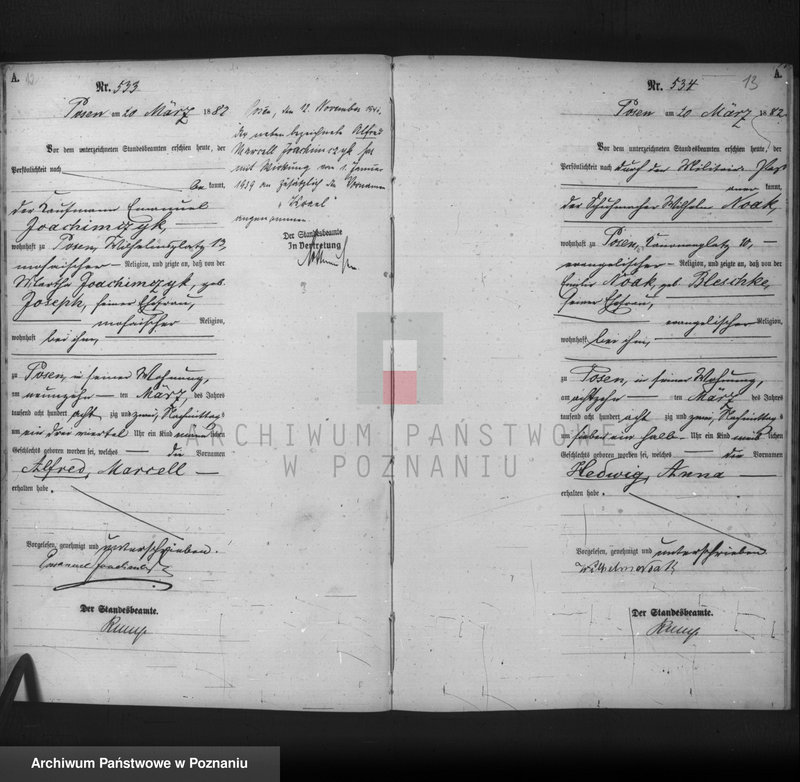 A.
12
Nr. 533
Posen am 20 März 1882
Vor dem unterzeichneten Standesbeamten erschien heute, der
Persönlichkeit nach
be kannt,
der Kaufmann Emanuel
Joachimczyk,
wohnhaft zu Posen, Wilhelmsplatz 13,
mosaischer Religion, und zeigte an, daß von der
Martha Joachimczyk, geb.
Joseph, seiner Ehefrau,
mosaischer Religion,
wohnhaft bei ihm,
zu Posen, in seiner Wohnung,
am neunzehn ten März des Jahres
tausend acht hundert acht zig und zwei, Nachmittags
um ein drei viertel Uhr ein Kind männlichen
Geschlechts geboren worden sei, welches die Vornamen
Alfred, Marcell
erhalten habe.
Vorgelesen, genehmigt und unterschrieben.
Emanuel
Der Standesbeamte.
Posen, den 12. November
Der neben bezeichnete Alfred
Marcell Joachimczyk hat
mit Wirkung vom 1. Januar
1939 an zusätzlich den Vornamen
"Israel"
angenommen.
Der Standesbeamte
In Vertretung
A.
13
Nr. 534
Posen am 20 März 1882
Vor dem unterzeichneten Standesbeamten erschien heute, der
Persönlichkeit nach durch der Militair-
aner kannt,
der Schuhmacher Wilhelm Noak,
wohnhaft zu Posen, Kanonenplatz 10,
evangelischer Religion, und zeigte an, daß von der
Emilie Noak, geb. Bleschke,
seiner Ehefrau,
evangelischer Religion,
wohnhaft bei ihm,
zu Posen, in seiner Wohnung,
am achtzehn ten März des Jahres
tausend acht hundert acht zig und zwei, Nachmittags
um sieben ein halb Uhr ein Kind weiblichen
Geschlechts geboren worden sei, welches die Vornamen
Hedwig, Anna
erhalten habe.
Vorgelesen, genehmigt und unterschrieben.
Wilhelm Noak
Der Standesbeamte.
ARCHIWUM PAŃSTWOWE
W POZNANIU
Archiwum Państwowe w Poznaniu